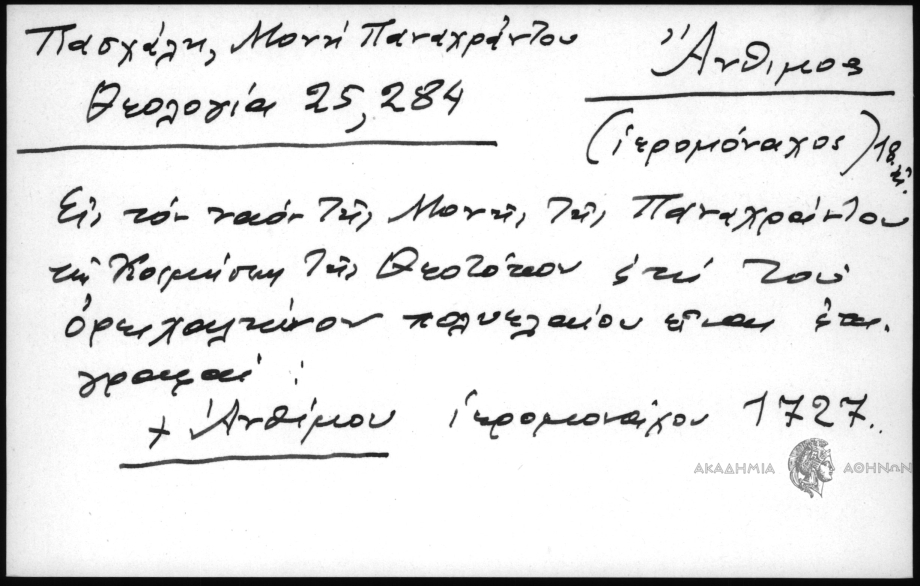 Πασχάλη, Μονή Παναχράντου
Θεολογία 25, 284
Ἄνθιμος
(ἱερομόναχος) 18
Εἰς τόν ναόν τῆς Μονῆς τῆς Παναχράντου
τῆς Κοιμήσεως τῆς Θεοτόκου ἐπί τοῦ
ὀρειχαλκίνου πολυελαίου εἶναι ἐπι-
γραφαί :
+ Ἀνθίμου ἱερομονάχου 1727..
ΑΚΑΔΗΜΙΑ ΑΘΗΝΩΝ